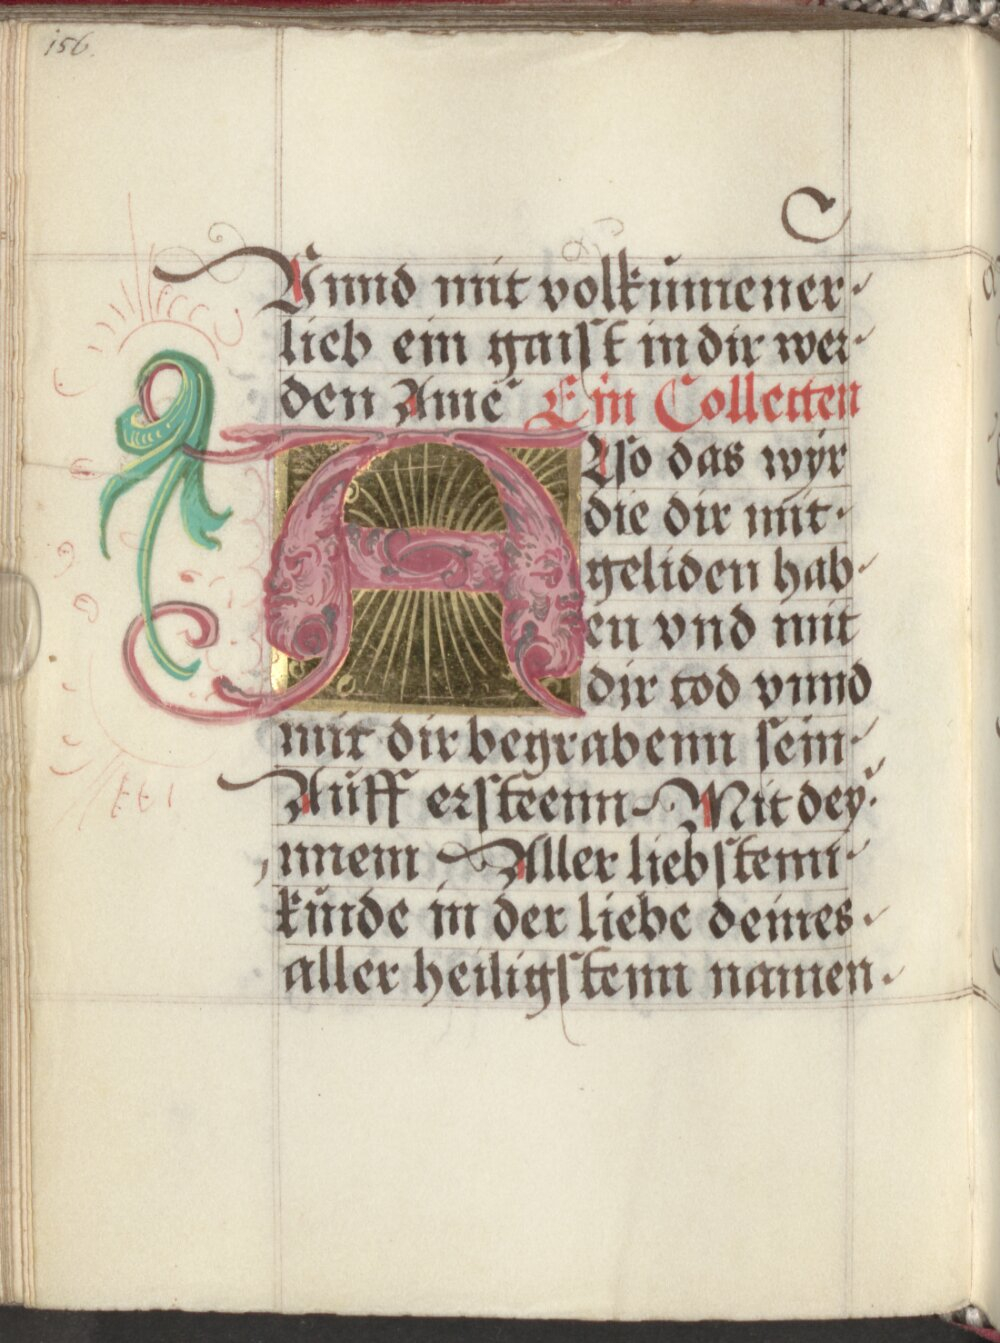 156.
Vnnd mit volkůmener
lieb ein gaist in dir wer
den Amē Ein Collecten
Also das wyr
die dir mit
geliden hab
en vnd mit
dir tod vnnd
mit dir begrabenn sein
Auff ersteenn Mit dey
nnem Aller liebstemn
kůnde in der liebe deines
aller heiligstenn namen